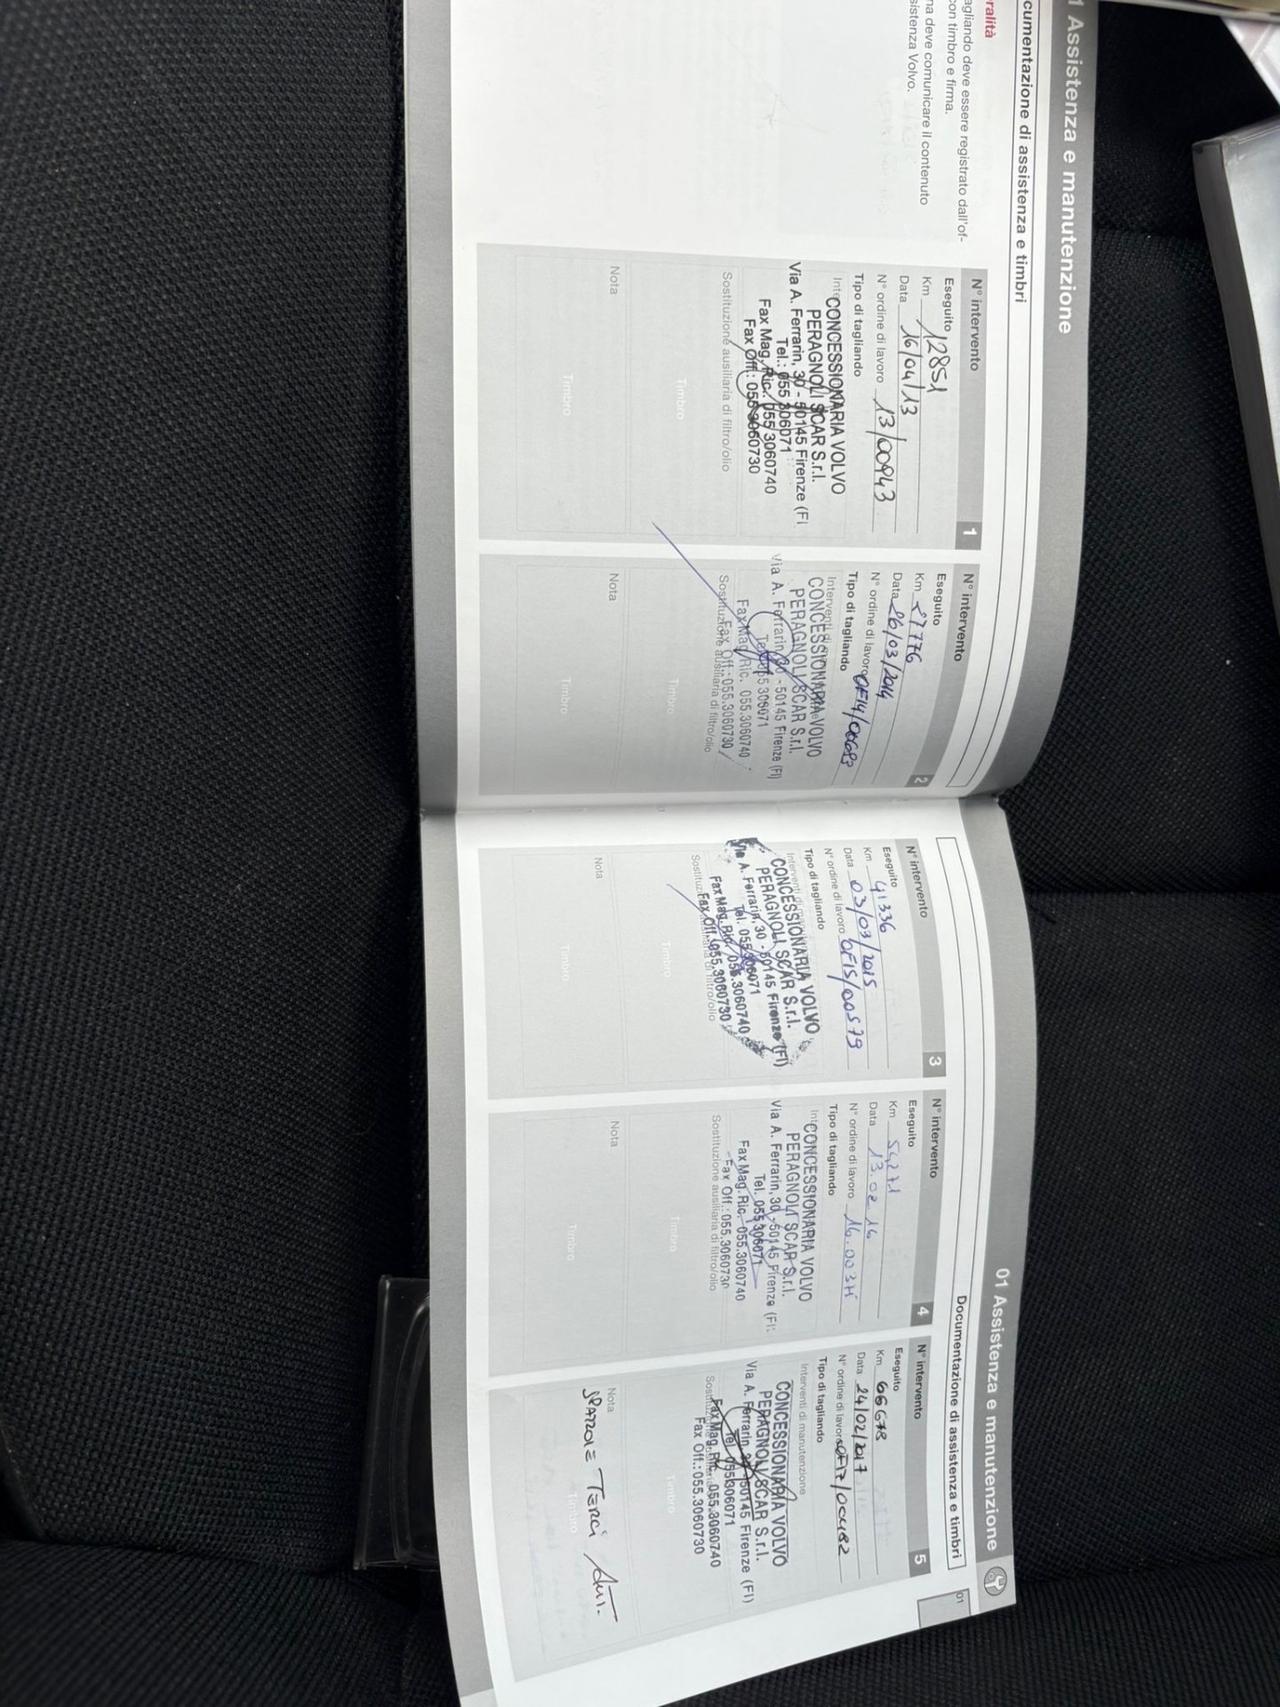 1 Assistenza e manutenzione
cumentazione di assistenza e timbri
ralità
agliando deve essere registrato dall'of-
con timbro e firma.
na deve comunicare il contenuto
sistenza Volvo.
N° intervento 1
Eseguito
Km 12851
Data 16/04/13
N° ordine di lavoro 13/00943
Tipo di tagliando
CONCESSIONARIA VOLVO
PERAGNOLI SCAR S.r.l.
Via A. Ferrarin, 30 - 50145 Firenze (FI
Tel.: 055 306071
Fax Mag. Ric.: 055 3060740
Fax Off.: 055 3060730
Sostituzione ausiliaria di filtro/olio
Timbro
Nota
Timbro
N° intervento 2
Eseguito
Km 27776
Data 26/03/2014
N° ordine di lavoro OF14/00693
Tipo di tagliando
Interventi di
CONCESSIONARIA VOLVO
PERAGNOLI SCAR S.r.l.
Via A. Ferrarin, 30 - 50145 Firenze (FI)
Tel. 055 306071
Fax Mag. Ric. 055.3060740
Fax Off.: 055.3060730
Sostituzione ausiliaria di filtro/olio
Timbro
Nota
Timbro
01 Assistenza e manutenzione
Documentazione di assistenza e timbri
01
N° intervento 3
Eseguito
Km 41336
Data 03/03/2015
N° ordine di lavoro OF15/00579
Tipo di tagliando
Interventi di
CONCESSIONARIA VOLVO
PERAGNOLI SCAR S.r.l.
Via A. Ferrarin, 30 - 50145 Firenze (FI)
Tel. 055.306071
Fax Mag. Ric. 055.3060740
Fax Off. 055.3060730
filtro/olio
Timbro
Nota
Timbro
N° intervento 4
Eseguito
Km 54271
Data 13.02.16
N° ordine di lavoro
Tipo di tagliando
CONCESSIONARIA VOLVO
PERAGNOLI SCAR S.r.l.
Via A. Ferrarin, 30 - 50145 Firenze (FI
Tel. 055 306071
Fax Mag. Ric. 055.3060740
Fax Off.: 055.3060730
Sostituzione ausiliaria di filtro/olio
Timbro
Nota
Timbro
N° intervento 5
Eseguito
Km 66678
Data 24/02/2017
N° ordine di lavoro OF17/00482
Tipo di tagliando
Interventi di manutenzione
CONCESSIONARIA VOLVO
PERAGNOLI SCAR S.r.l.
Via A. Ferrarin 30 - 50145 Firenze (FI)
Tel. 055306071
Fax Mag. Ric. 055.3060740
Fax Off.: 055.3060730
Timbro
Nota
SPAZZOLE TERGI ANT.
Timbro